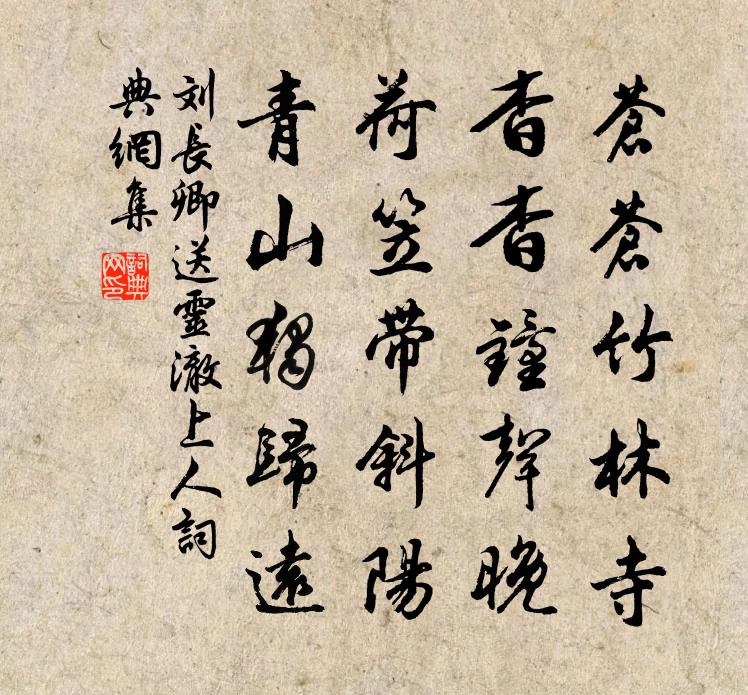 蒼蒼竹林寺
杳杳鐘聲晚
荷笠帶斜陽
青山獨歸遠
刘長卿送靈澈上人詞
典網集
詞典网印